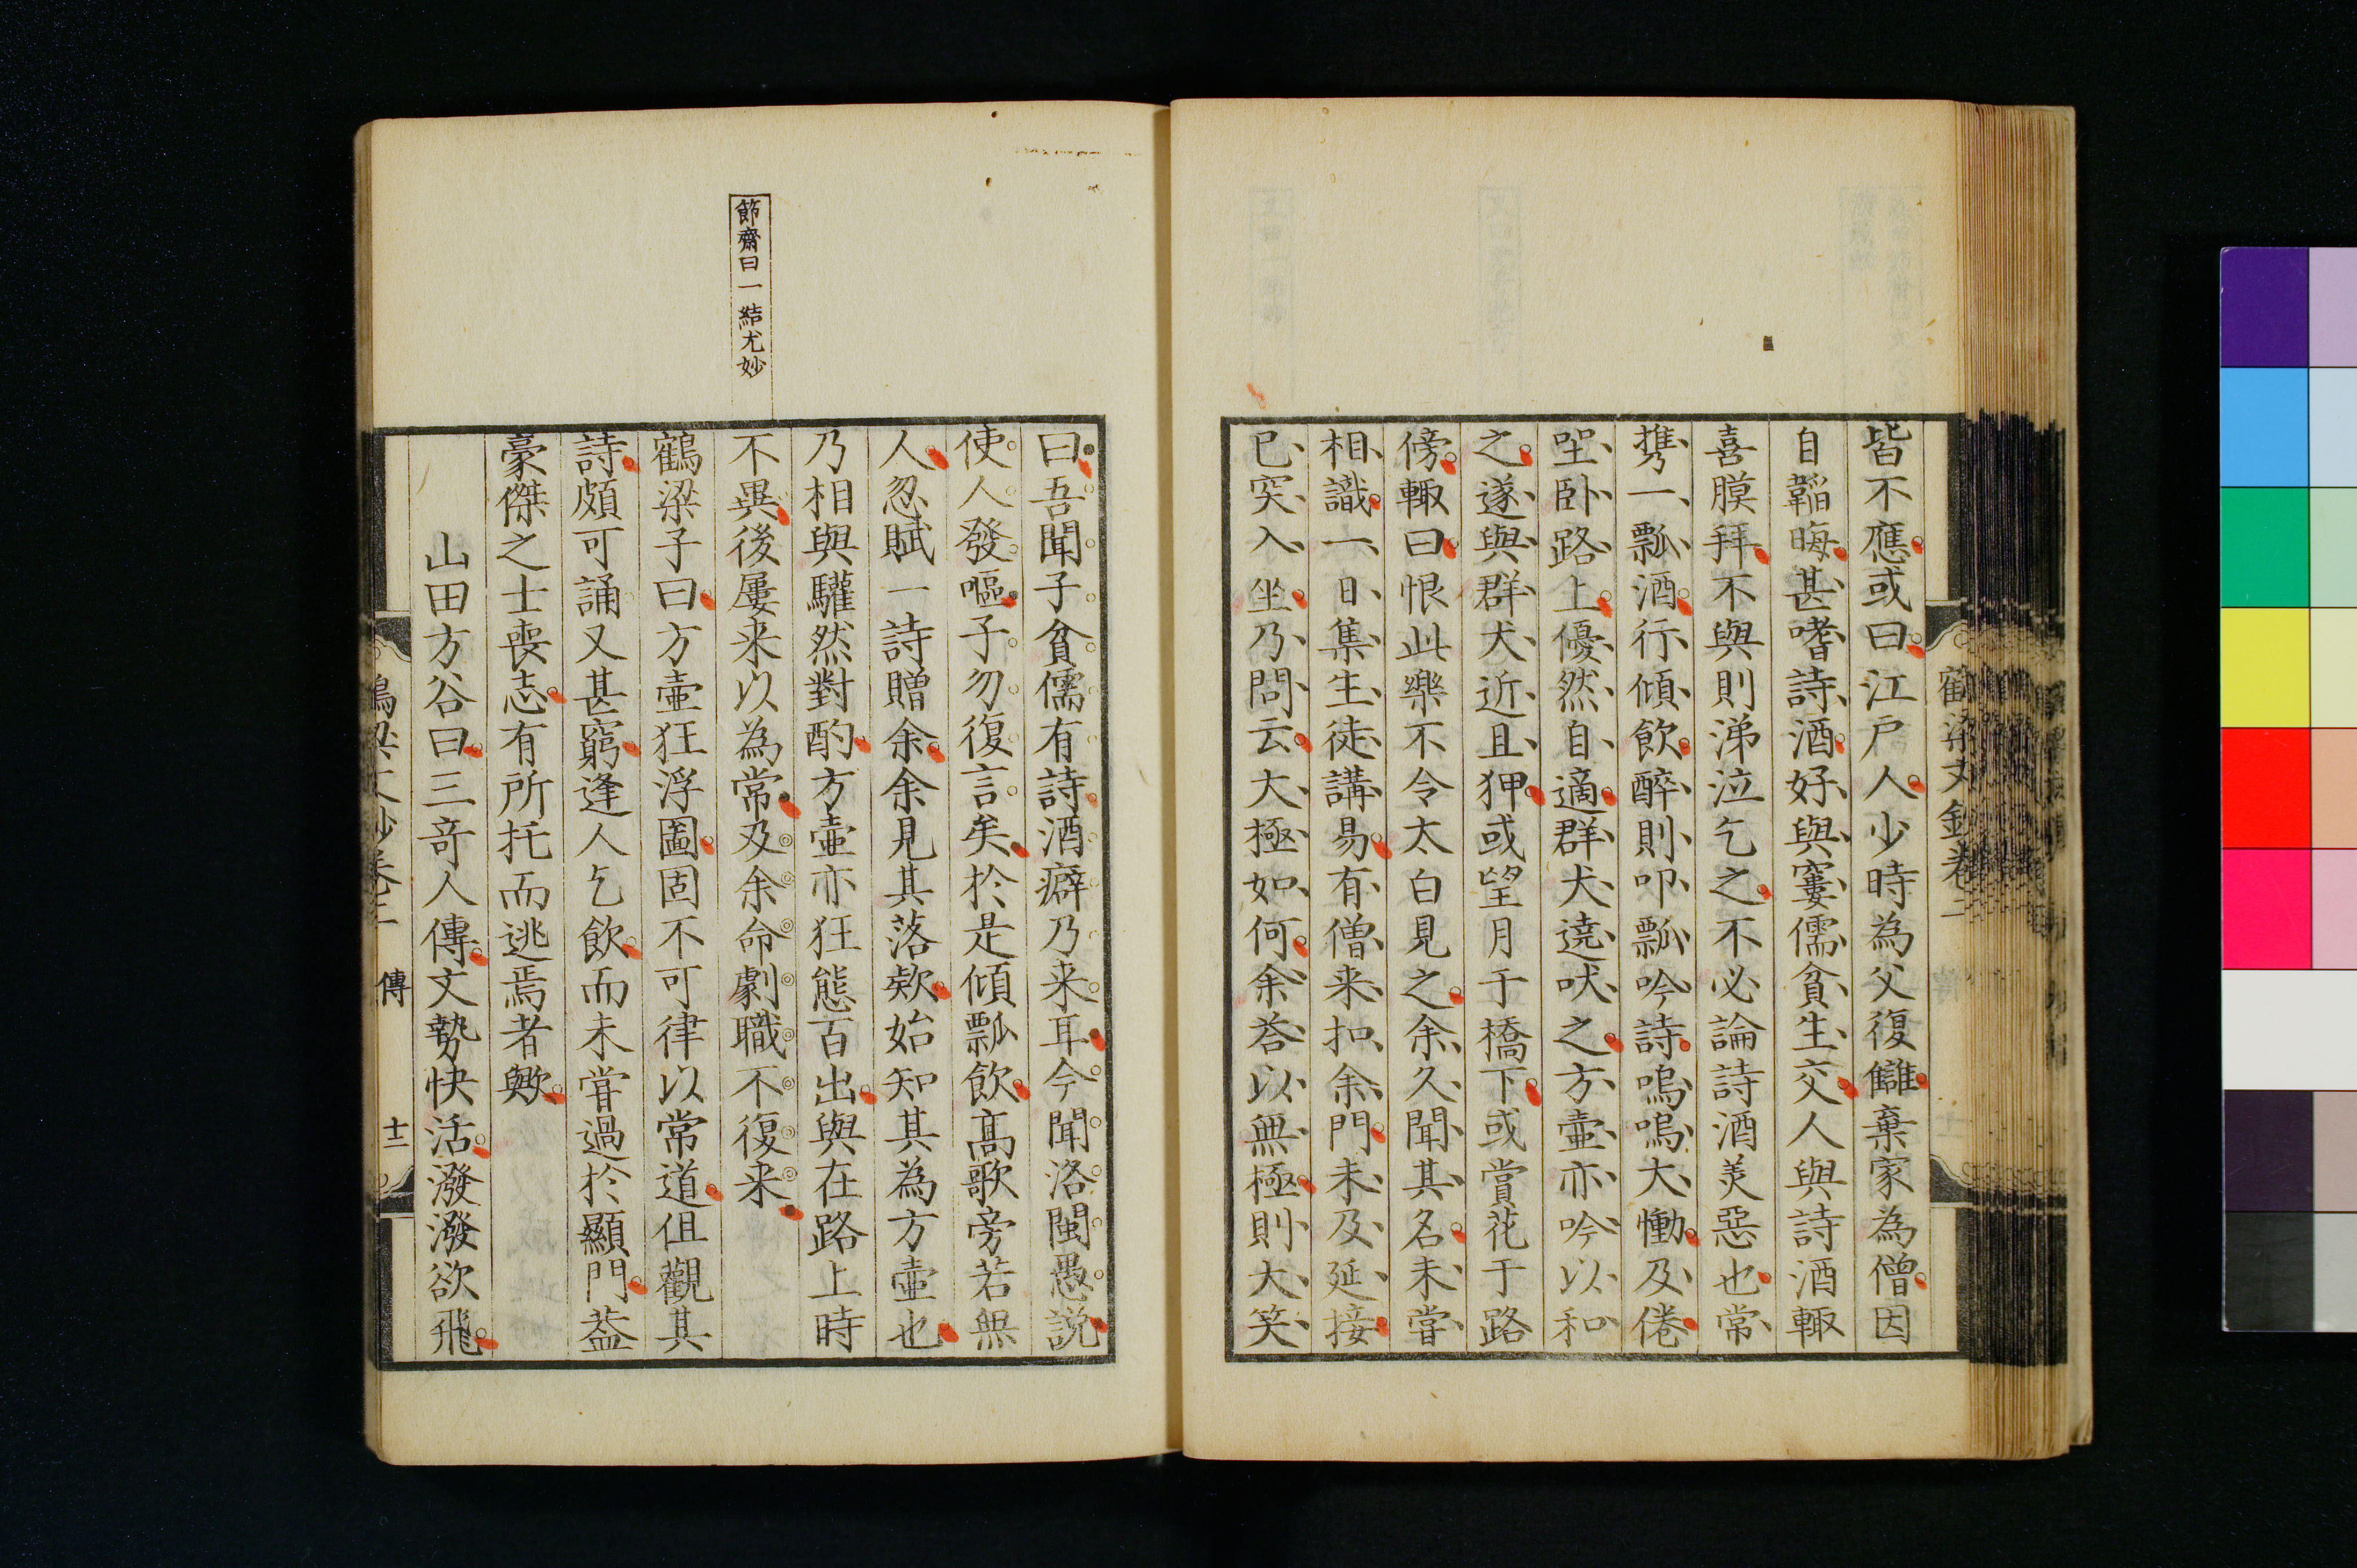 皆不應或曰江戸人少時為父復讎棄家為僧因
自韜晦甚嗜詩酒好與窶儒貧生交人與詩酒輙
喜膜拜不與則涕泣乞之不必論詩酒羙惡也常
携一瓢酒行傾飲醉則叩瓢吟詩嗚嗚大慟及倦
坐卧路上優然自適群犬遶吠之方壷亦吟以和
之遂與群犬近且狎或望月于橋下或賞花于路
傍輙曰恨此樂不令太白見之余久聞其名未嘗
相識一日集生徒講易有僧来扣余門未及延接
已突入坐乃問云大極如何余荅以無極則大笑
曰吾聞子貧儒有詩酒癖乃来耳今聞洛閩愚説
使人發嘔子勿復言矣於是傾瓢飲高歌旁若無
人忽賦一詩贈余余見其落欵始知其為方壷也
乃相與驩然對酌方壷亦狂態百出與在路上時
不異後屢来以為常及余命劇職不復来
鶴梁子曰方壷狂浮圖固不可律以常道但觀其
詩頗可誦又甚窮逢人乞飲而未甞過於顯門蓋
豪傑之士喪志有所托而逃焉者歟
山田方谷曰三竒人傳文勢快活潑潑欲飛
節齋曰一結尤妙
鶴梁文鈔卷二
傳
十二